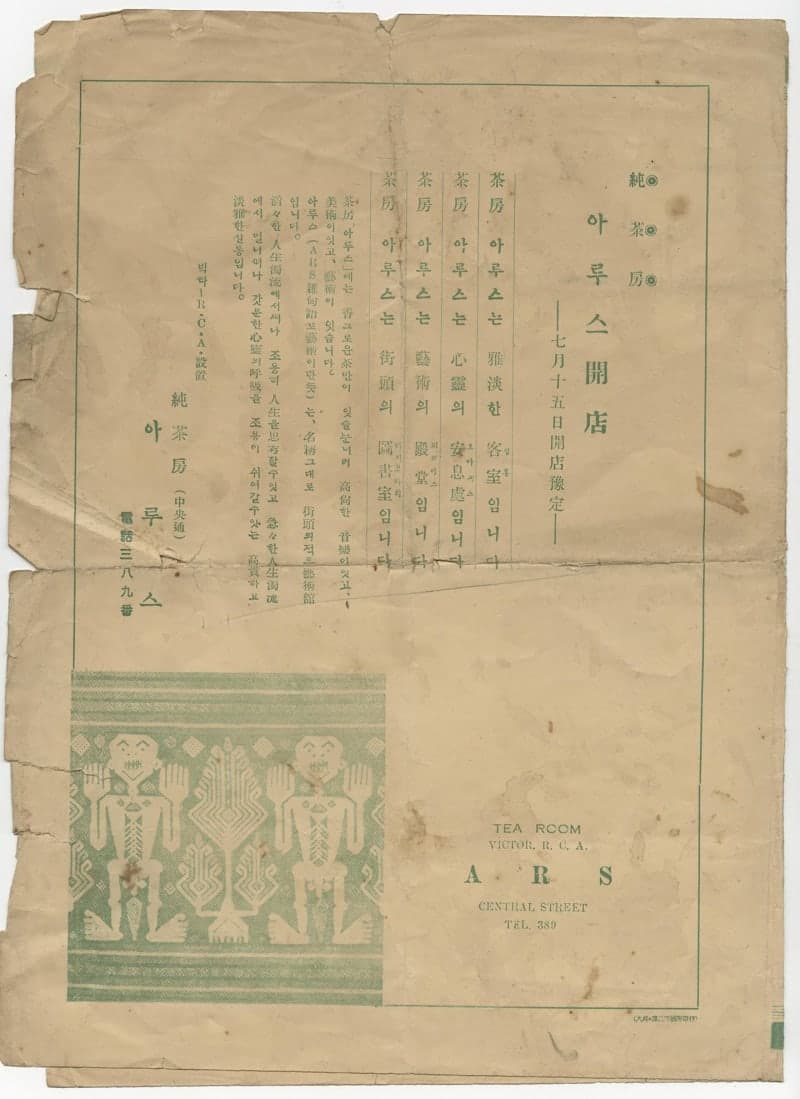 ◎純 ◎茶 ◎房
아루스開店
―七月十五日開店豫定―
茶房 아루스는 雅淡한 客室입니다
茶房 아루스는 心靈의 安息處입니다
오아시스
茶房 아루스는 藝術의 殿堂입니다
茶房 아루스는 街頭의 圖書室입니다
茶房「아루스」에는 香그로운茶만이 잇슬뿐너러 高尙한 音樂이잇고、
美術이잇고、藝術이 잇습니다。
아루스 (ARS羅甸語로藝術이란뜻) 는、名稱그대로 街頭의적은藝術館
입니다。
人生濁流에서 조용히 人生을思考할수잇고 急々한人生濁流
에서 心靈의呼吸을 조용이 쉬여갈수잇는 高貴하고
淡雅한 입니다。
빅타ーR・C・A・設置
純茶房 (中央通)
아루스
電話三八九番
TEA ROOM
VICTOR. R. C. A.
A R S
CENTRAL STREET
TEL. 389